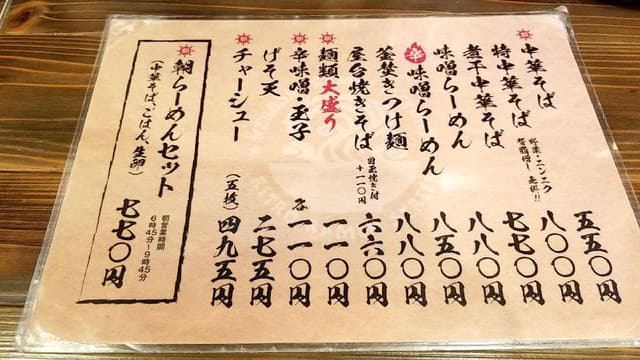 中華そば 五五〇円
特中華そば 八〇〇円
野菜・ニンニク
背脂増し無料!!
煮干中華そば 七七〇円
味噌らーめん 八八〇円
辛味噌らーめん 八五〇円
釜焚きつけ麺 八八〇円
屋台焼きそば 六六〇円
目玉焼き付
+一一〇円
麺類大盛り 一一〇円
辛味噌・玉子 各一一〇円
げそ天 二七五円
チャーシュー (五枚) 四九五円
朝らーめんセット 七七〇円
(中華そば、ごはん、生卵)
朝営業時間
6時45分~9時45分